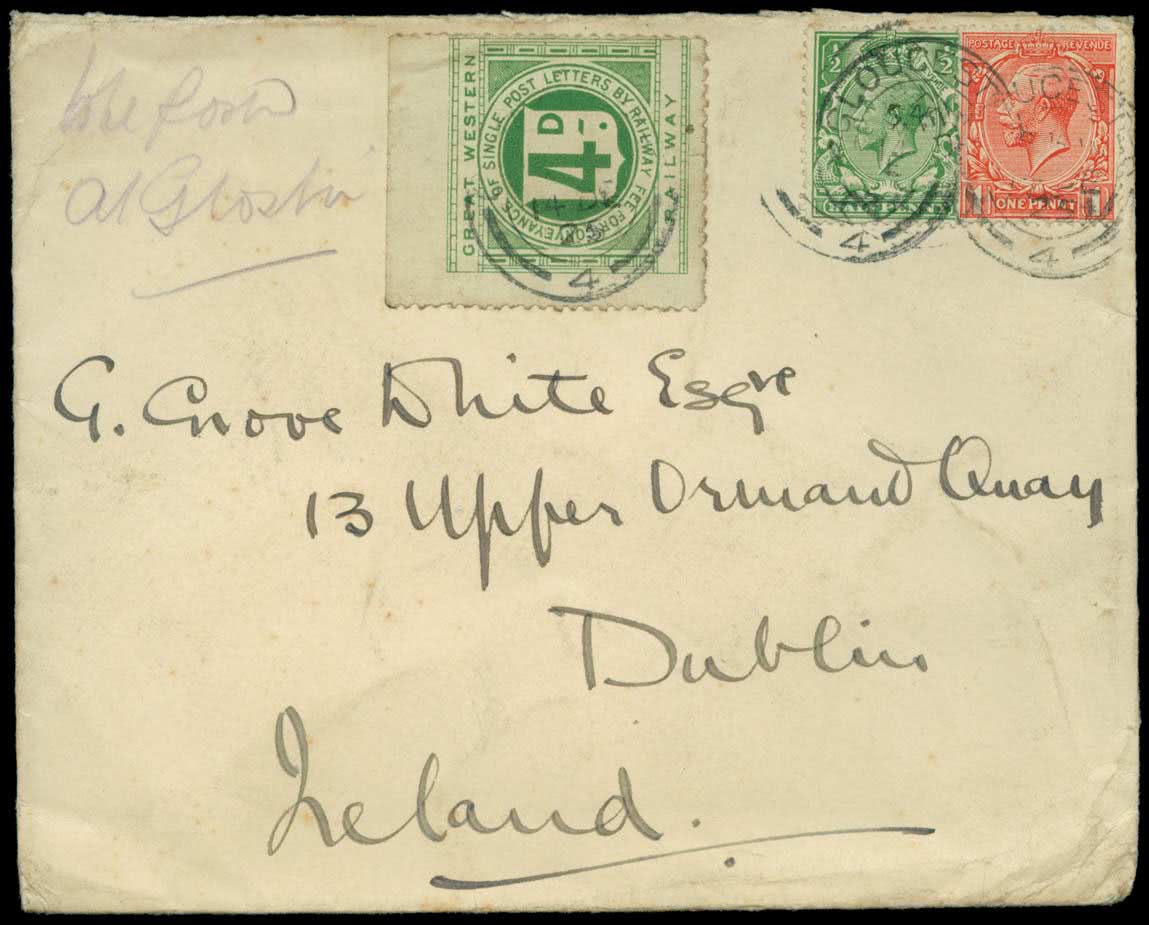 At Gloster
GREAT WESTERN
RAILWAY
CONVEYANCE OF SINGLE POST LETTERS BY RAILWAY FEE FOR
4D.
4
½ ½
GLOUCEST
4
POSTAGE REVENUE
ONE PENNY 1
UCES
4
G. Grove White Esqre
13 Upper Ormand Quay
Dublin
Ireland.